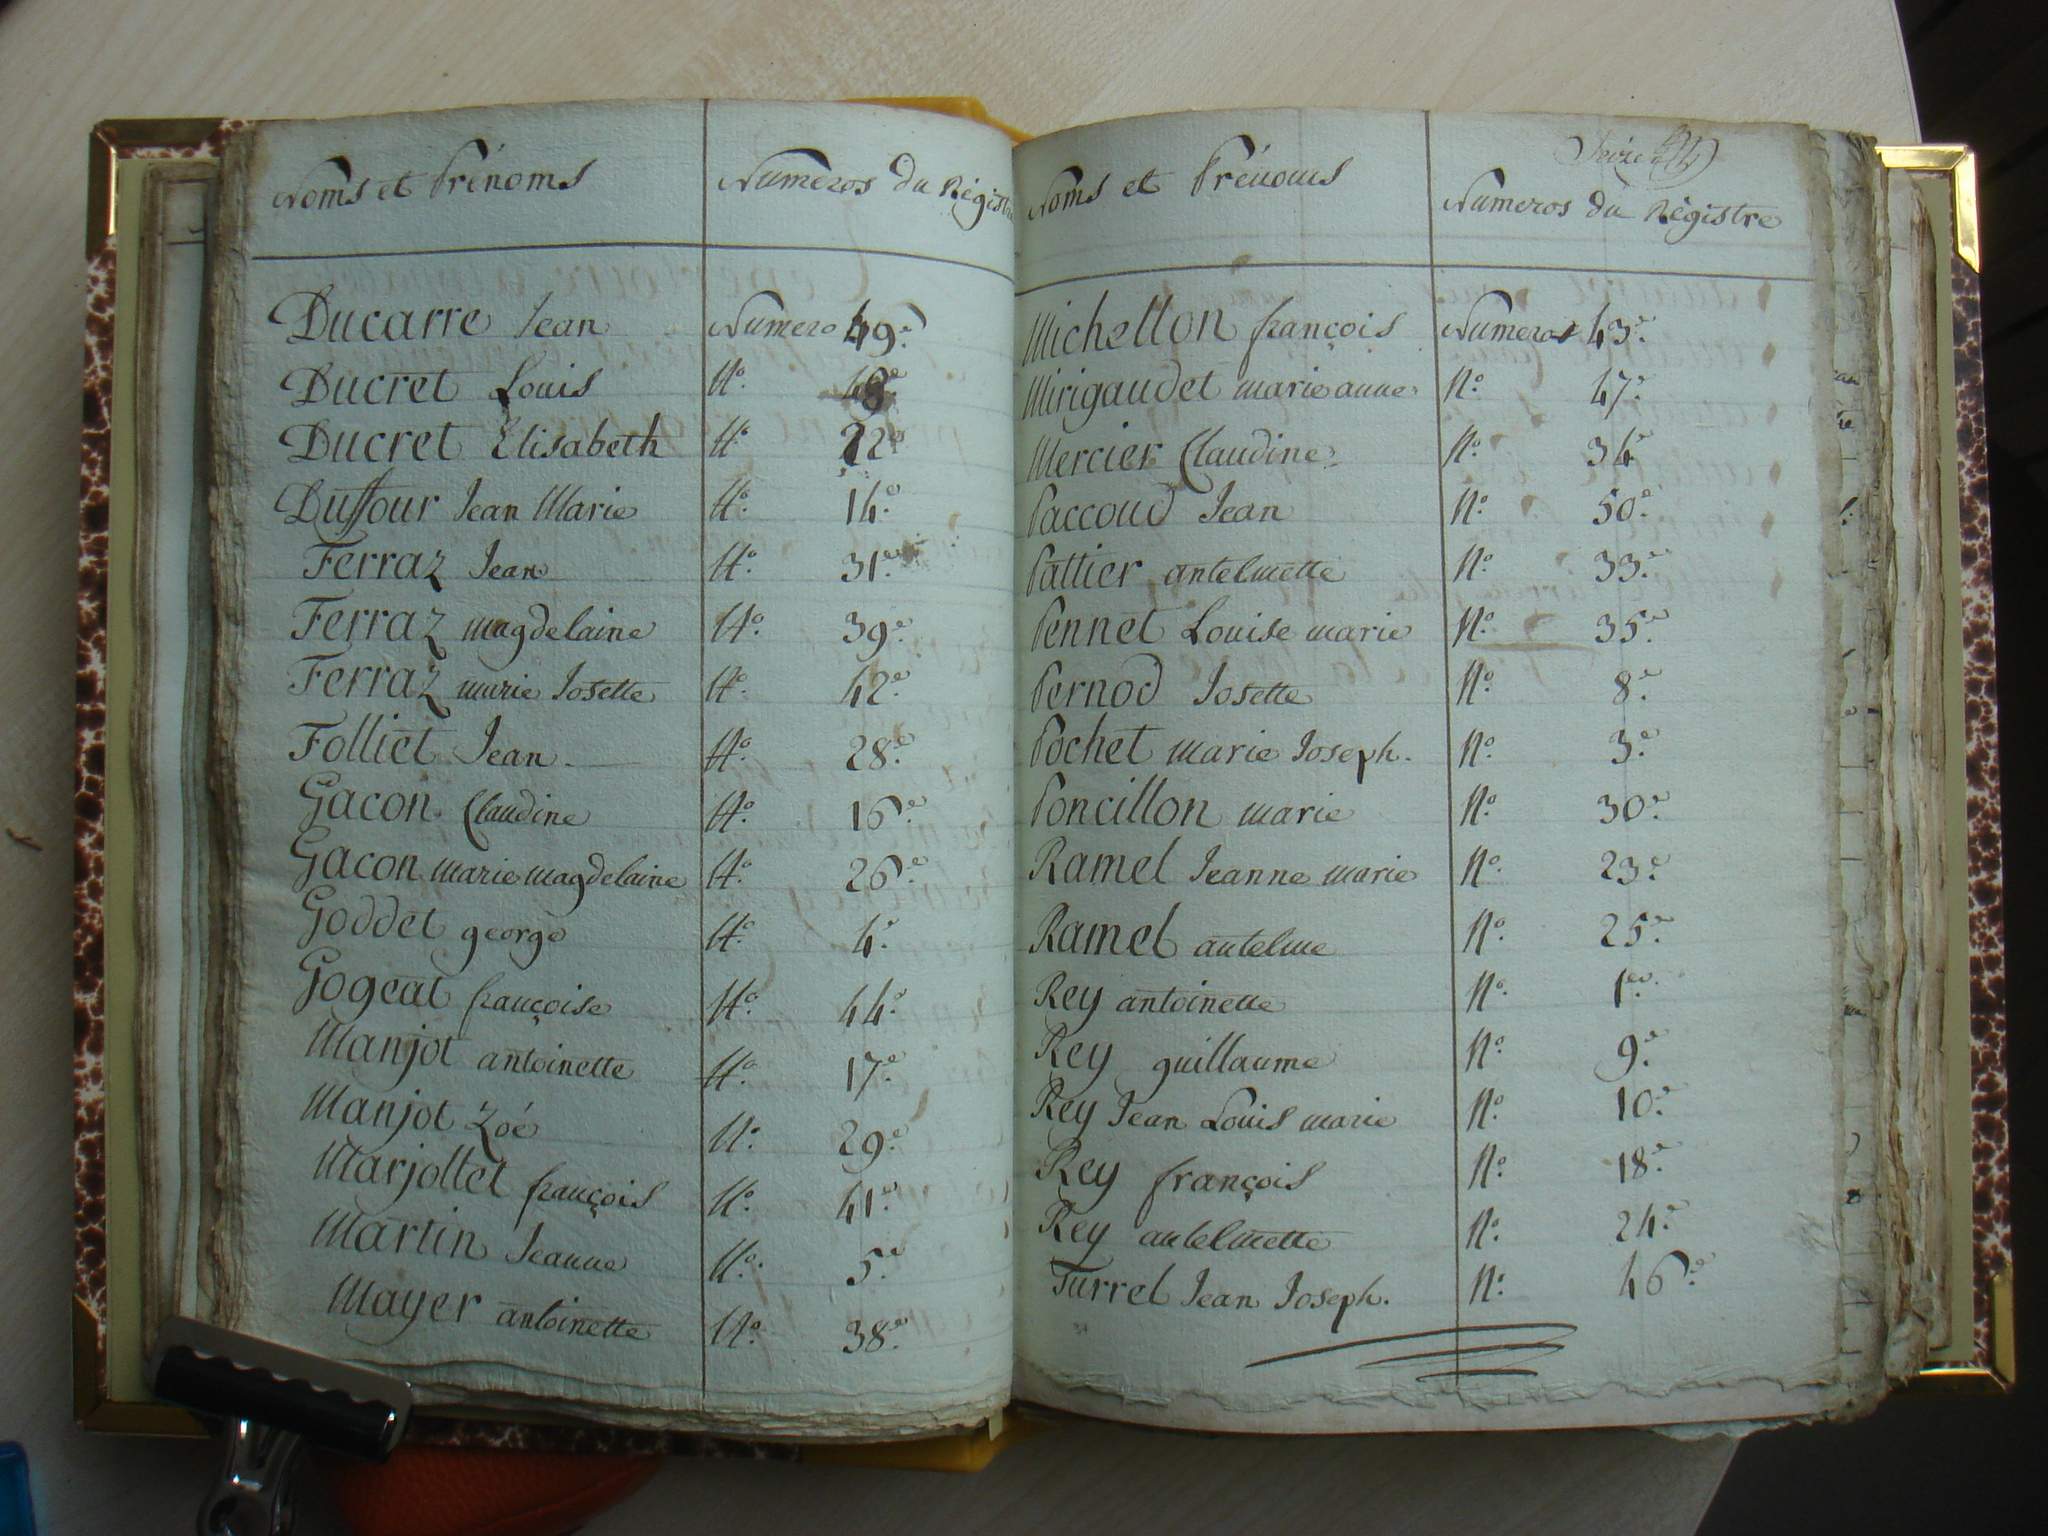 Noms et Prénoms Numéros du Régistre
Ducarre Jean Numero 49.e
Ducret Louis N.o
Ducret Elisabeth N.o 22.e
Duffour Jean Marie N.o 14.e
Ferraz Jean N.o 31.e
Ferraz magdelaine N.o 39.e
Ferraz marie Josette N.o 42.e
Folliet Jean N.o 28.e
Gacon Claudine N.o 16.e
Gacon marie magdelaine N.o 26.e
Goddet george N.o 4.e
Gogeat françoise N.o 44.e
Manjot antoinette N.o 17.e
Manjot Zoé N.o 29.e
Marjollet françois N.o 41.e
Martin Jeanne N.o 5.e
Mayer antoinette N.o 38.e
Noms et Prénoms Numeros du Régistre
Michellon françois Numeros 43.e
Mirigaudet marie anne N.o 47.e
Mercier Claudine N.o 34.e
Paccoud Jean N.o 50.e
Pattier antelmette N.o 33.e
Pennet Louise marie N.o 35.e
Pernod Josette N.o 8.e
Pochet marie Joseph. N.o 3.e
Poncillon marie N.o 30.e
Ramel Jeanne marie N.o 23.e
Ramel antelme N.o 25.e
Rey antoinette N.o 1.er
Rey guillaume N.o 9.e
Rey Jean Louis marie N.o 10.e
Rey françois N.o 18.e
Rey antelmette N.o 24.e
Turrel Jean Joseph. N.o 46.e